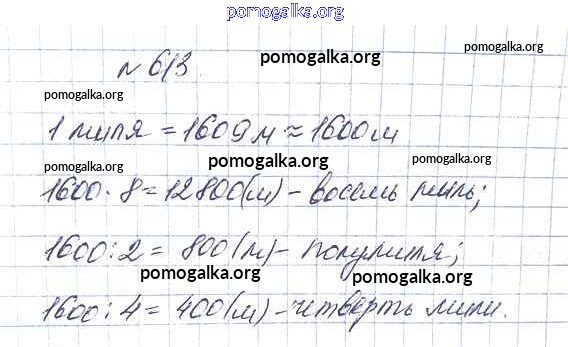 pomogalka.org
№ 613.
pomogalka.org
pomogalka.org
pomogalka.org
1 миля = 1609 м ≈ 1600 м
pomogalka.org
pomogalka.org
pomogalka.org
1600 · 8 = 12800 (м) - восемь миль;
1600 : 2 = 800 (м) - полумиля;
pomogalka.org
pomogalka.org
1600 : 4 = 400 (м) - четверть мили.